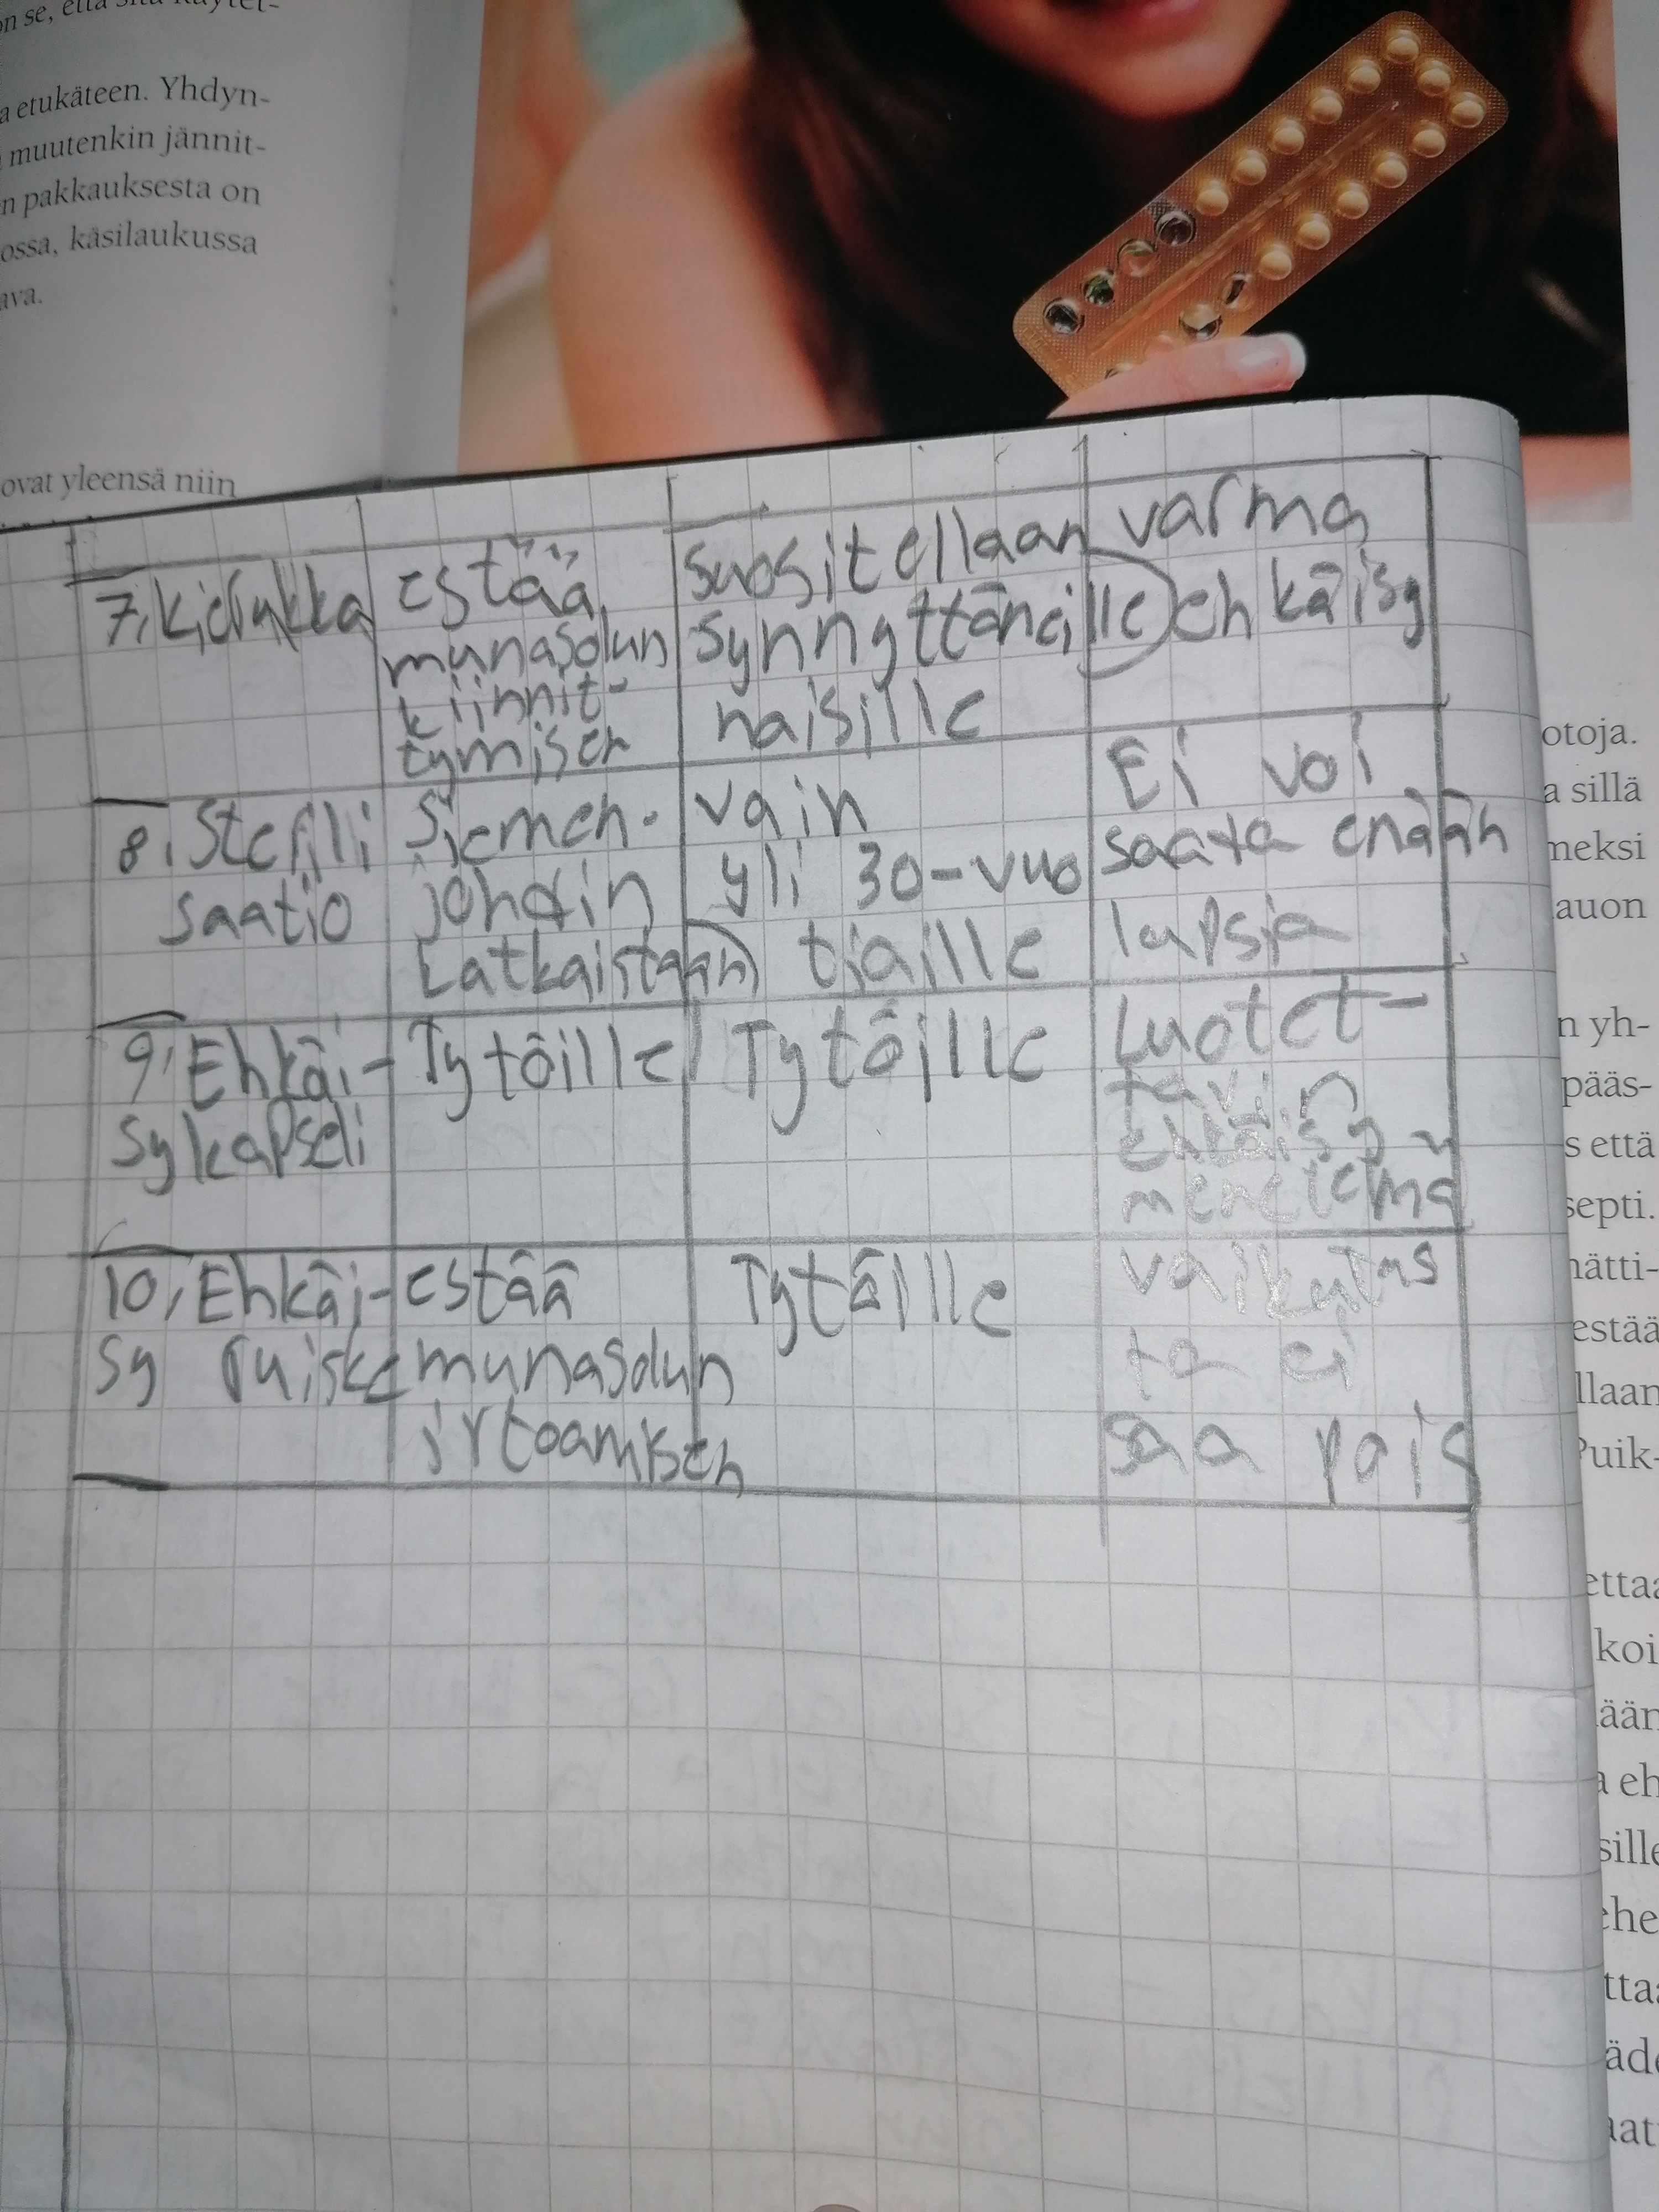 on se, että sitä käytet-
a etukäteen. Yhdyn-
muutenkin jännit-
n pakkauksesta on
ossa, käsilaukussa
ava.
ovat yleensä niin
7, kierukka
estää
munasolun
kiinnit-
tymisen
suositellaan
synnyttäneille
naisille
varma
ehkäisy
8, Sterilli
saatio
Siemen-
johdin
katkaistaan
vain
yli 30-vuo
tiaille
Ei voi
saata enään
lapsia
9, Ehkäi-
sykapseli
Tytöille
Tytöille
Luotet-
tavin
ehkäisy
menetelmä
10, Ehkäi-
sy ruiske
estää
munasolun
irtoamisen
Tytöille
vaikutus
ta ei
saa pois
otoja.
a sillä
neksi
auon
n yh-
pääs-
s että
septi.
nätti-
estää
llaan
Puik-
ettaa
koi
ään
a eh
sille
ehe
ttaa
äde
aat